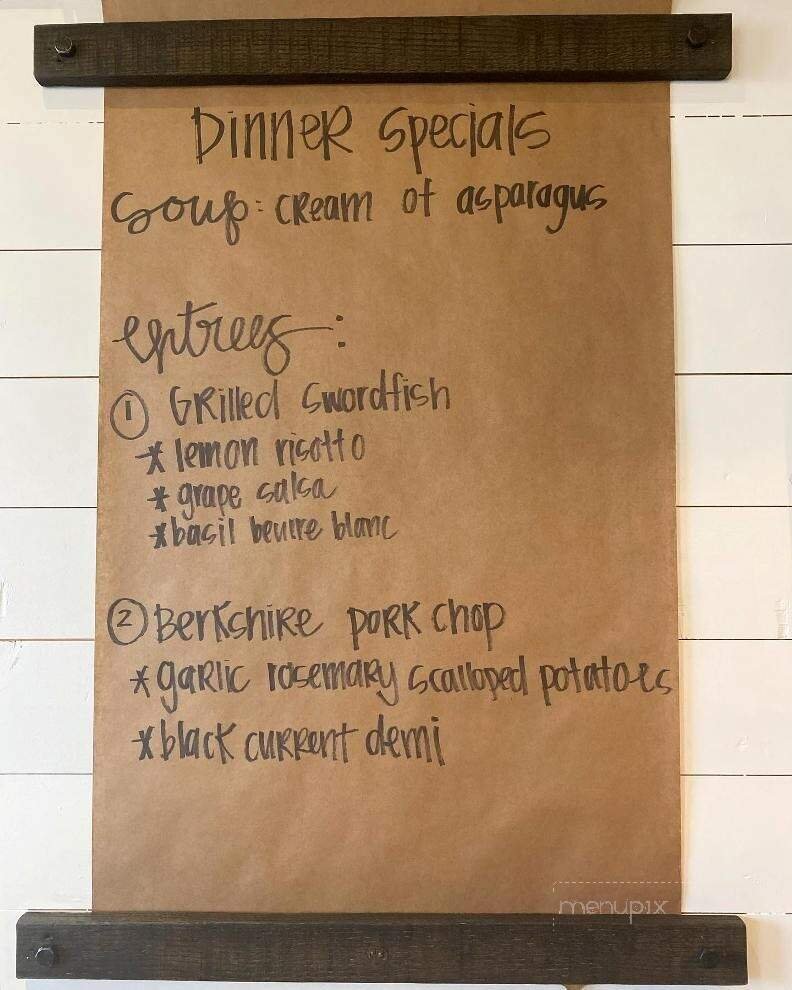 Dinner Specials
Soup: cream of asparagus
entrees:
1 Grilled Swordfish
* lemon risotto
* grape salsa
* basil beurre blanc
2 Berkshire pork chop
* garlic rosemary scalloped potatoes
* black current demi
menupix